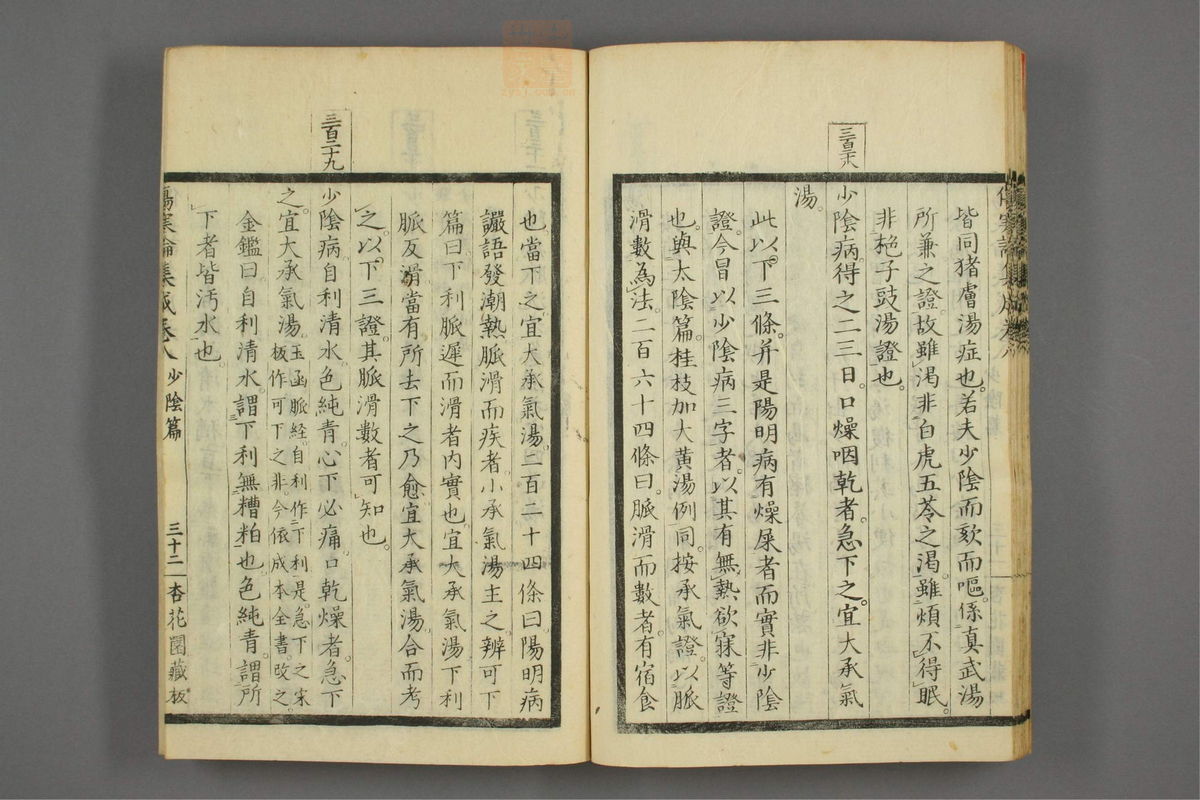 皆同猪膚湯症也。若夫少陰而欬而嘔。係真武湯
所兼之證。故雖渴非白虎五苓之渴。雖煩不得眠。
非梔子豉湯證也。
三百二十八
少陰病。得之二三日。口燥咽乾者。急下之。宜大承氣
湯。
此以下三條。并是陽明病有燥屎者。而實非少陰
證。今冒以少陰病三字者。以其有無熱欲寐等證
也。與太陰篇。桂枝加大黃湯例同。按承氣證。以脈
滑數為法。二百六十四條曰。脈滑而數者。有宿食
也。當下之。宜大承氣湯。二百二十四條曰。陽明病
讝語發潮熱。脈滑而疾者。小承氣湯主之。辨可下
篇曰。下利脈遲而滑者。內實也。宜大承氣湯。下利
脈反滑。當有所去。下之乃愈。宜大承氣湯。合而考
之。以下三證。其脈滑數者可知也。
三百二十九
少陰病。自利清水。色純青。心下必痛。口乾燥者。急下
之。宜大承氣湯。玉函脈經。自利作下利。是。急下之。宋板作可下之。非。今依成本全書。改之。
金鑑曰。自利清水。謂下利無糟粕也。色純青。謂所
下者皆汚水也。
傷寒論集成卷八 少陰篇 三十二 杏花園藏板